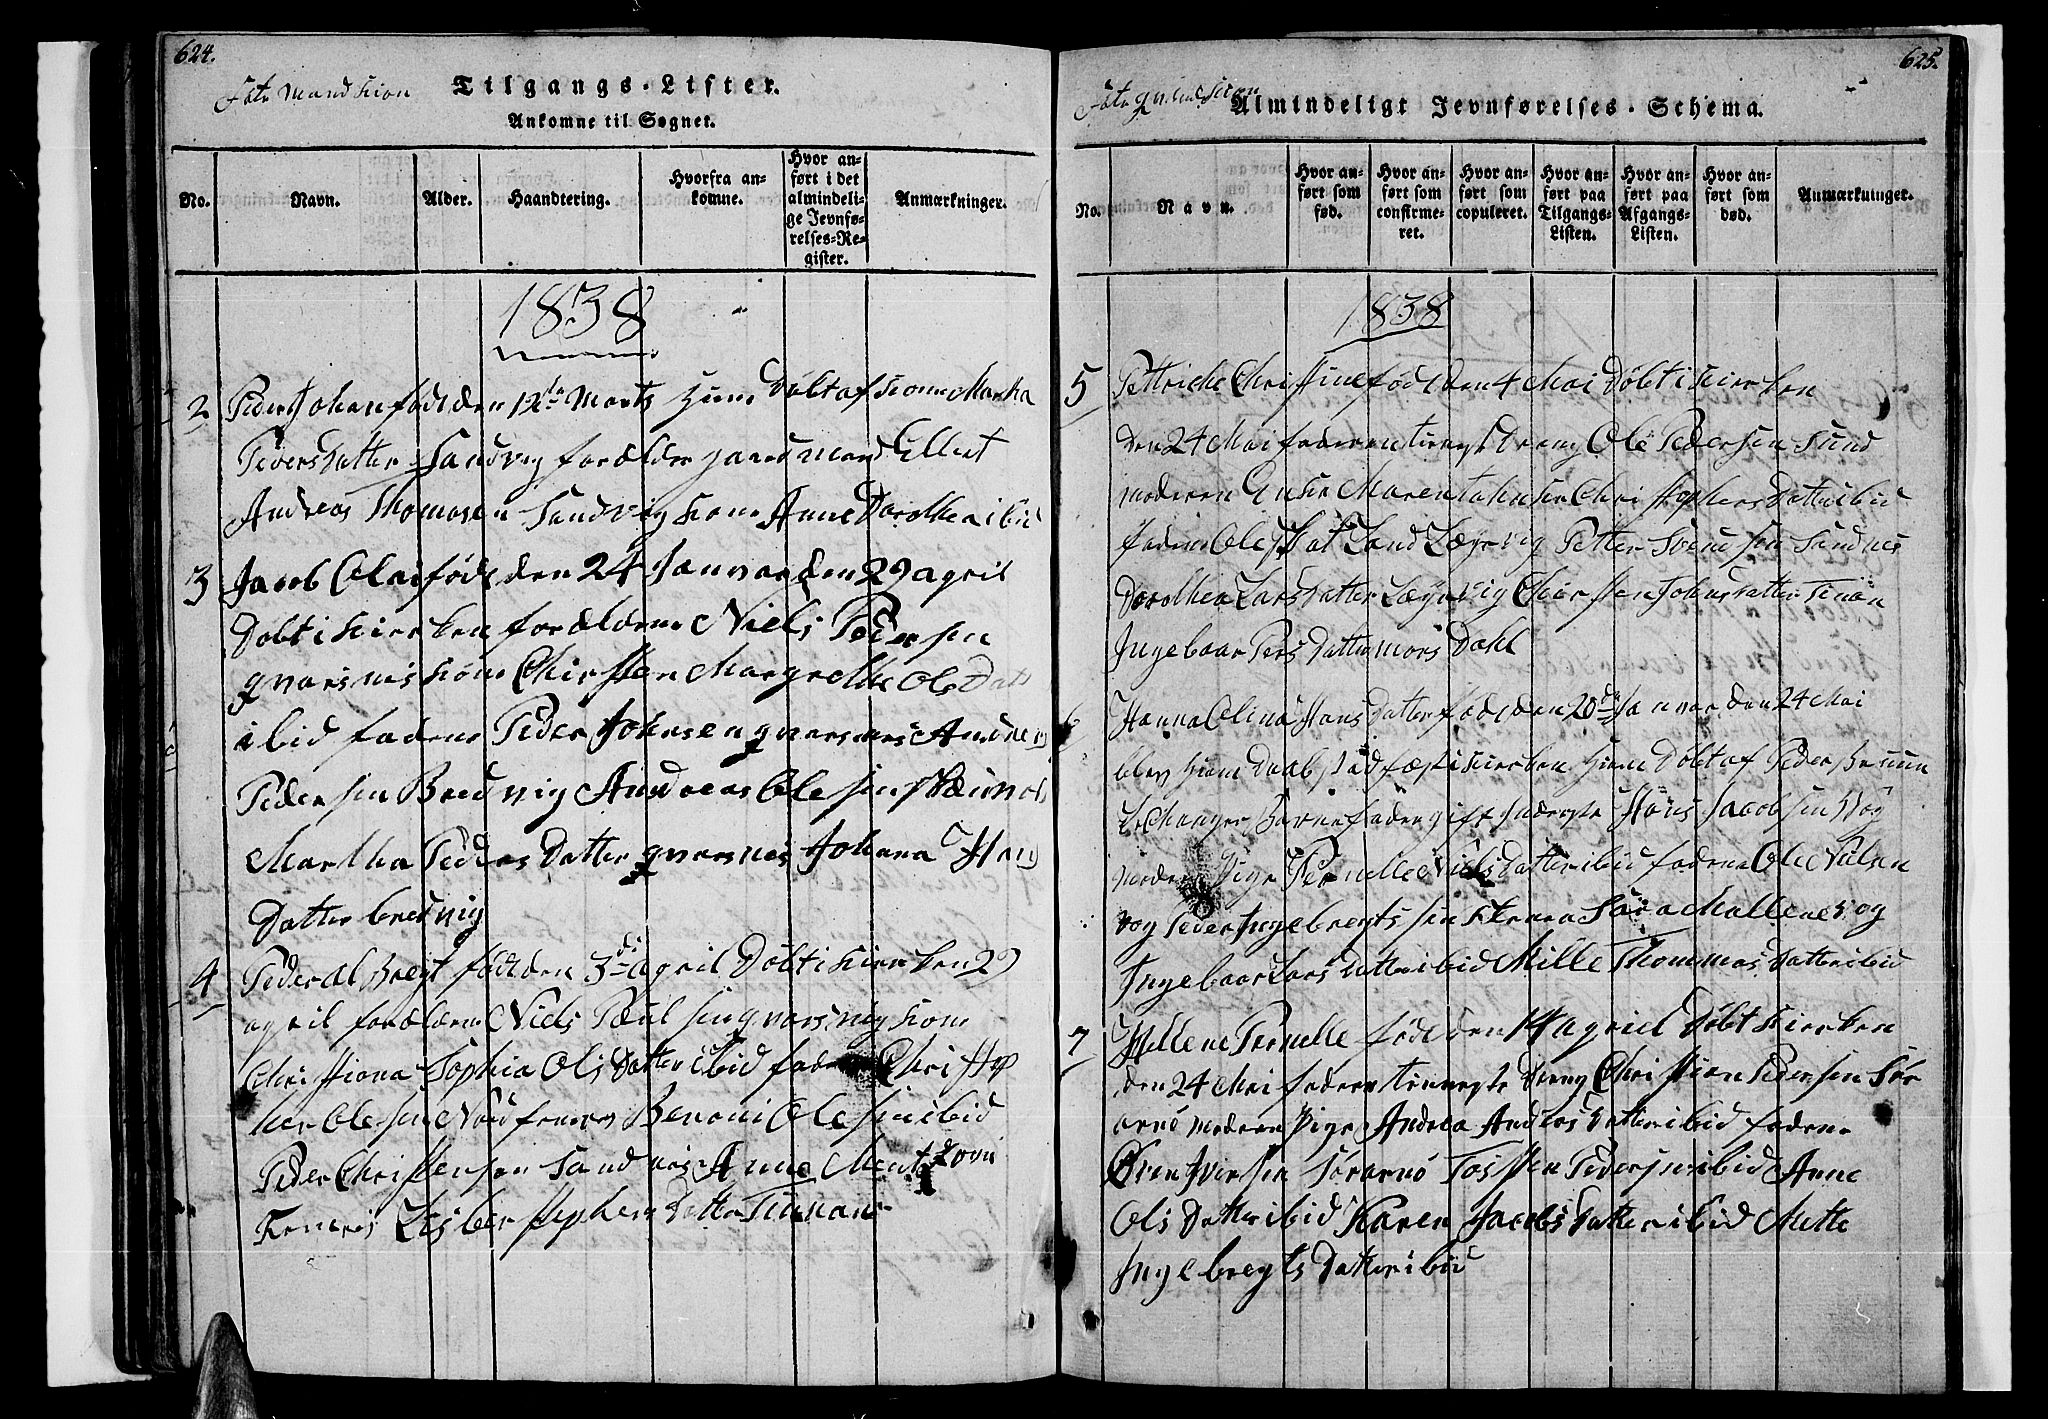 624.
Føte Mandkion
Tilgangs-Lister.
Ankomne til Sognet.
No.
Navn.
Alder.
Haandtering.
Hvorfra an-
komne.
Hvor an-
ført i det
almindeli-
ge Jevnfø-
relses-Re-
gister.
Anmærkninger.
1838
2 Peder Johan født den 12te Marts Hiem Døbt af kone Martha
Peders Datter Sandvig forælder gaardmand Ellert
Andreas Thomasen Sandvig kone Anne Dorothea ibid
3 Jacob Olai født den 24 Januar den 29 april
Døbt i kirken forældrene Niels Pedersen
qvarsnis kone Chirsten Margrethe Ols Datt
ibid fadere Peder Johnsen qvarsnes Andreas
Pedersen Bredvig Andreas Olesen
Martha Peders Datter qvarsnes Johana Hans
Datter bredvig
4 Peder Albregt født den 3di april Døbt i kirken 29
april forældrene Niels Paulsen qvarsvig kone
Christiana Sophia Ols Datter ibid fadere Christop
her Olesen Nordfrenes Benoni Olesen ibid
Peder Christensen Sandnes Anne
Lisber stephens Datter
625.
Føte qvindkion
Almindeligt Jevnførelses-Schema.
No.
Navn.
Hvor an-
ført som
fød.
Hvor an-
ført som
confirme-
ret.
Hvor an-
ført som
copuleret.
Hvor an-
ført paa
Tilgangs-
Listen.
Hvor an-
ført paa
Afgangs-
Listen.
Hvor an-
ført som
død.
Anmærkninger.
1838
5 Pettriche Christine fød den 4 Mai Døbt i kirken
den 24 Mai faderen tienste Dreng Ole Pedersen Sund
moderen Enke Maren Christophers Datter ibid
fadere Ole Petter Svendsen Sandnes
Dorothea Lars Datter Chirsten Johns Datter
Ingebaar Pers Datter mors Dahl
6 Hanna Olina Hans Datter fød den 20de Januar den 24 Mai
blev Hiem Daab stadfæst i kierken Hiem Døbt af Peder Bruun
Barnefader gift Inderste Hans Jacobsen Vog
moderen Pige Pernelle Niels Datter ibid fadere Ole Nilsen
vog Peder Ingebregtsen Sara Mallene vog
Ingebaar Lars Datter ibid Mille Thommas Datter ibid
7 Hellene Pernelle fød den 14 apriel Døbt kierken
den 24 Mai faderen tieneste Dreng Christian Pedersen Sør
arnø moderen Pige Andrea Anders Datter ibid fadere
Øven Iversen Sørarnø Tosten Pedersen ibid Anne
Ols Datter ibid Karen Jacobs Datter ibid Mette
Ingebregts Datter ibid